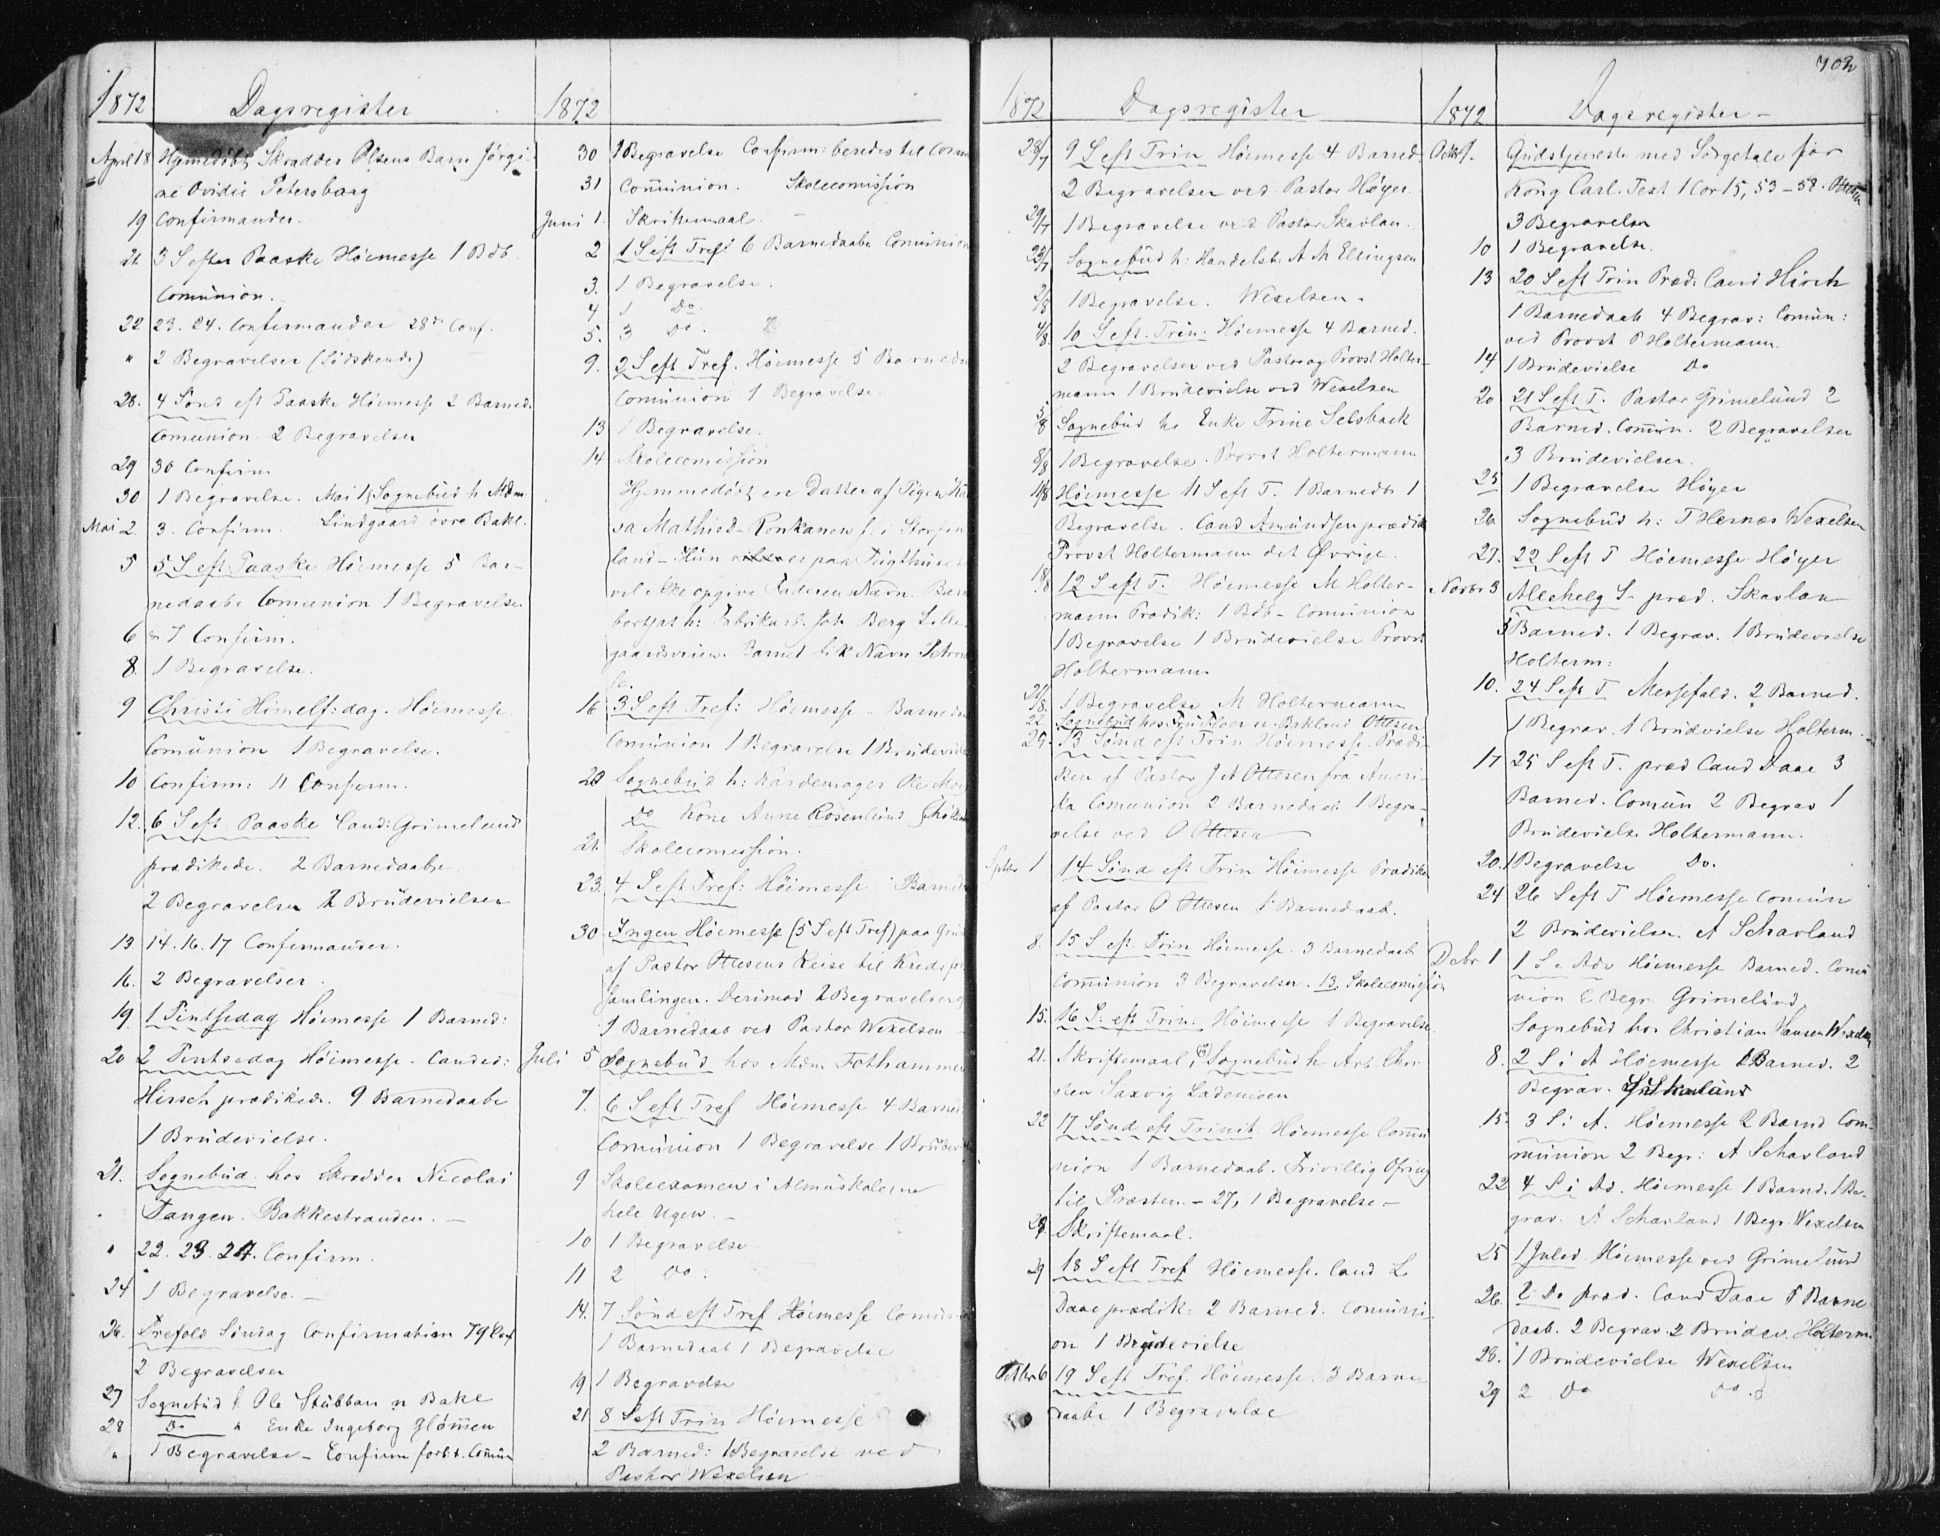 702
1872 Dagsregister
April 18 Hjemedøbt Skrædder Olsens Barn Jörgi-
ne Ovidie Petersborg
19 Confirmander.
21. 3 S efter Paaske Höimesse 1 Bdb
Comunion.
22 23. 24. Confirmander 28de Conf.
" 2 Begravelser (Södskende)
28. 4 Sönd eft Paaske Höimesse 2 Barned.
Comunion. 2 Begravelser
29 30 Confirm
30 1 Begravelse. Mai 1ste Sognebud h. Mdm
Lindgaard övre Bakl.
Mai 2. 3. Confirm.
5 5 S eft Paaske Höimesse 5 Bar-
nedaabe Comunion 1 Begravelse
6 & 7 Confirm.
8. 1 Begravelse.
9 Christi Himelf: dag. Höimesse
Comunion 1 Begravelse.
10 Confirm: 11 Confirm.
12. 6 S eft Paaske Cand: Grimelund
prædikede. 2 Barnedaabe
2 Begravelser 2 Brudevielser
13 14. 16. 17 Confirmander.
16. 2 Begravelser.
19. 1 Pintsedag Höimesse 1 Barned:
20 2 Pintsedag Höimesse. Canded:
Hirsch prædikede. 9 Barnedaabe
1 Brudevielse.
21. Sognebud hos Skrædder Nicolai
Tangen. Bakkestranden. —
" 22. 23. 24. Confirm.
24 1 Begravelse. —
26. Trefold Söndag Confirmation 79 Conf
2 Begravelser
27 Sognebud h Ole Stubban n Bakl
28 Do " Enke Ingeborg Glömen
" 1 Begravelse — Confirm forb. t. Comun
1872
30 1 Begravelse Confirm: beredes til Comun
31 Comunion. Skolecomission
Juni 1. Skriftemaal. —
2 1 S eft Tref 6 Barnedaabe Comunion
3. 1 Begravelse.
4 1 Do.
5. 3 Do.
9. 2 S eft Tref. Höimesse 5 Barneda
Comunion 1 Begravelse.
13 1 Begravelse.
14 Skolecomission
Hjemmedöbt en Datter af Pigen
sa Mathisd- Konkanen f: i Storfjen
land — Hun er paa Tugthuset
vil ikke opgive Faderens Navn. Barn
bortsat h: Fabrikarb. Joh Berg Lille-
gaardsveien. Barnet fik Navn Petron
16 3 S eft Tref: Höimesse — Barneda
Comunion 1 Begravelse 1 Brudeviel
20 Sognebud h: Kardemager Ole
Do Kone Anne Rosenlund
21. Skolecomission.
23. 4 S eft Tref: Höimesse Barned
30 Ingen Höimesse (5 S eft Tref) paa Grund
af Pastor Ottesens Reise til Kredsfor
samlingen. Derimod 2 Begravelser
1 Barnedaab ved Pastor Wexelsen
Juli 5 Sognebud hos Mdm Fothammer
7. 6 S eft Tref Höimesse 4 Barned
Comunion 1 Begravelse 1 Brudeviel
9 Skoleexamen i Almuskolerne
hele Ugen. —
10 1 Begravelse
11 2 Do.
14. 7 Sönd eft Tref Höimesse Comunion
1 Barnedaab 1 Begravelse
19 1 Begravelse
21 8 S eft Trin Höimesse
2 Barned: 1 Begravelse ved
Pastor Wexelsen
1872 Dagsregister
28/7 9 S eft Trin Höimesse 4 Barned
2 Begravelser ved Pastor Höyer.
29/7 1 Begravelse ved Pastor Skavlan.
Sognebud h: Handelsb: A M Ellingsen
2/8 1 Begravelse. Wexelsen.
4/8 10 S eft. Trin. Höimesse 4 Barned.
2 Begravelser ved Pastor og Provst Holter-
mann 1 Brudevielse ved Wexelsen
5/8 Sognebud hs Enke Trine Selsbaek
8/8 1 Begravelse. Provst Holtermann
11/8 Höimesse 11 S eft T. 1 Barnedb 1
Begravelse. Cand Amundsen prædik
Provst Holtermann det Øvrige.
18/8 12 S eft T. Höimesse M Holter-
mann Prædik: 1 Bdb — Comunion
1 Begravelse 1 Brudevielse Provst
Holtermann
21/8. 1 Begravelse M Holtermann
22 Sognebud hos n. Bakland Ottesen
25. 13 Sönd eft Trin Höimesse. Prædi-
ken af Pastor J A Ottesen fra Ameri-
ka Comunion 2 Barnedaab 1 Begra-
velse ved O Ottesen
Septbr 1 14 Sönd eft Trin Höimesse Prædike
af Pastor O Ottesen 1 Barnedaab.
8. 15 S eft. Trin Höimesse. 3 Barnedaab
Comunion 3 Begravelser. 13. Skolecomission
15. 16 S. eft Trin: Höimesse 1 Begravelse.
21. Skriftemaal, Sognebud h Arb. Chri
sten Saxvig Lademoen
22 17 Sönd eft Trinit. Höimesse Comu
nion 1 Barnedaab. Frivillig Ofring
til Præsten. — 27, 1 Begravelse —
28. Skriftemaal.
29 18 S eft Tref Höimesse. Cand L
Daae prædik: 2 Barned. Comuni-
on 1 Brudevielse
Octbr 6 19 S eft Tref. Höimesse. 3 Barne
daabe 1 Begravelse
1872 Dagsregister —
Octbr 9. Gudstjeneste med Sörgetale for
Kong Carl. Text 1 Cor 15, 53-58. Ottesen
3 Begravelser
10 1 Begravelse.
13 20 S eft Trin Præd: Cand Hirsch
1 Barnedaab 4 Begrav: Comun:
ved Provst P Holtermann.
14 1 Brudevielse Do
20 21 S eft T. Pastor Grimelund 2
Barned. Comun. 2 Begravelser
3 Brudevielser.
25 1 Begravelse Höyer
26. Sognebud h: T Hernæs Wexelsen
27. 22 S eft T Höimesse Höyer
Novbr 3 Allehelg S. præd. Skavlan
5 Barned. 1 Begrav. 1 Brudevielse
Holterm:
10. 24 S eft T Messefald. 2 Barned.
1 Begrav. 1 Brudevielse Holterm.
17 25 S eft T. præd Cand Daae 3
Barned. Comun 2 Begrav 1
Brudevielse Holtermann.
20. 1 Begravelse Do.
24 26 S eft T Höimesse Comun
2 Brudevielser. A Schavland
Decbr 1 1 S. i Adv Höimesse Barned. Comu
nion 2 Begr. Grimelund,
Sognebud hos Christian Hansen Wexelsen
8. 2 S i A Höimesse Barned. 2
Begrav.
15. 3 S i A. Höimesse 2 Barnd Com-
munion 2 Begr: A Schavland
22 4 S i Ad. Höimesse 1 Barnd. 1 Be-
grav. A Schavland 1 Begr. Wexelsen
25 1 Juled. Höimesse ved Grimelund
26. 2 Do præd. Cand Daae 8 Barne
daab. 2 Begrav. 2 Brudev. Holterm.
28. 1 Brudevielse Wexelsen
29 2 Do Do.